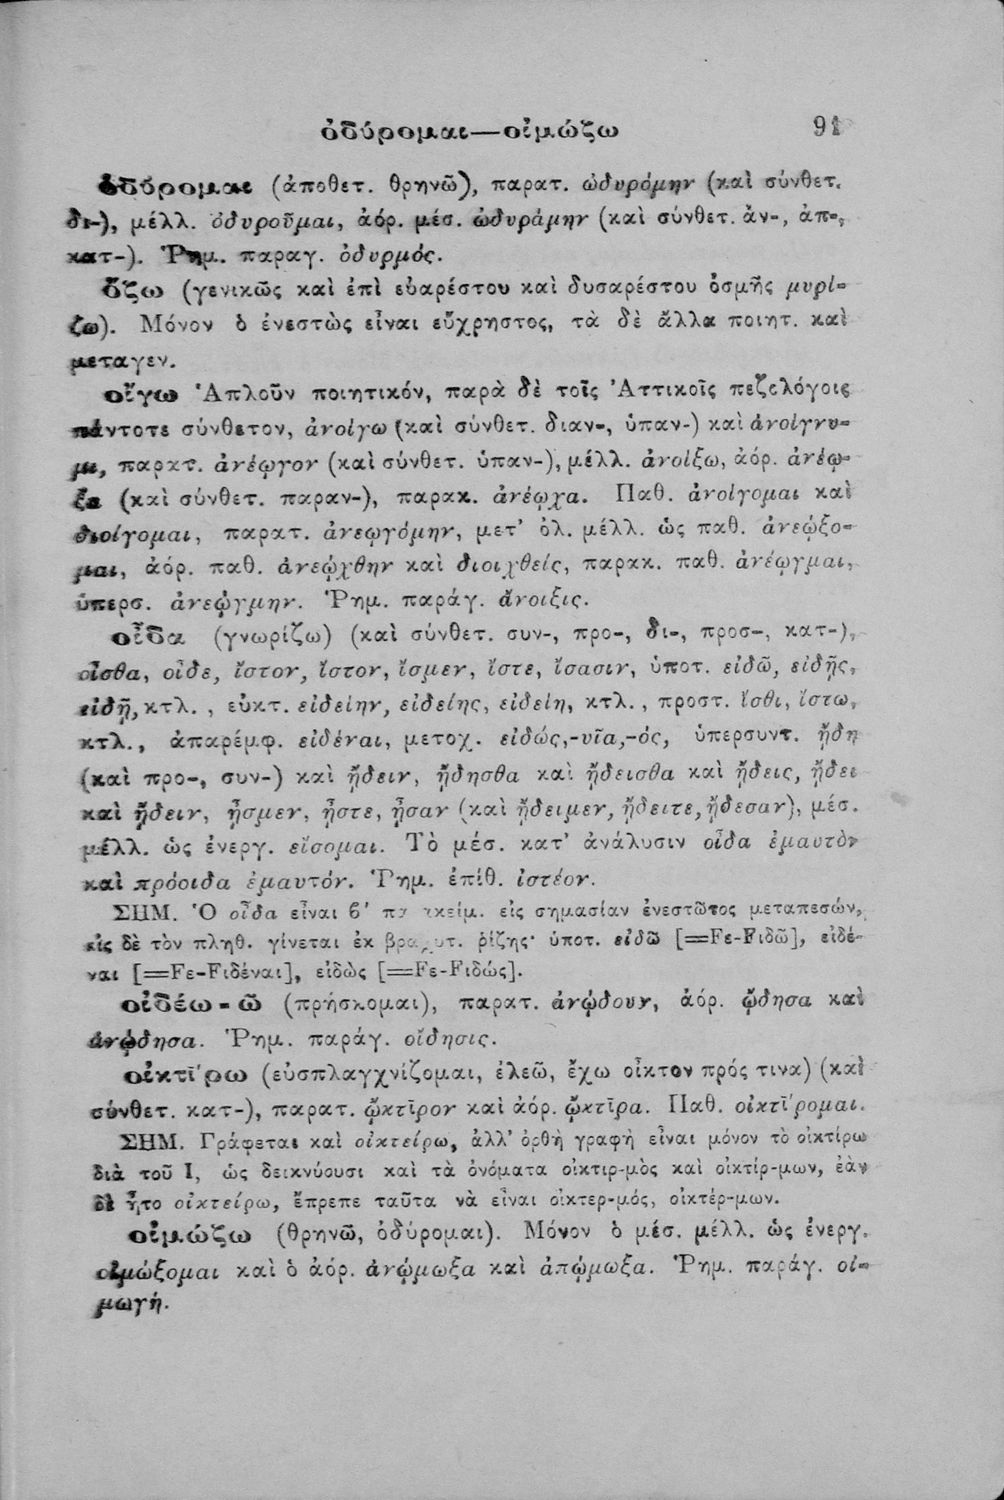 ὀδύρομαι—οἰμώζω 91
ὀδύρομαι (ἀποθετ. θρηνῶ), παρατ. ὠδυρόμην (καὶ σύνθετ.
δι-), μέλλ. ὀδυροῦμαι, ἀόρ. μέσ. ὠδυράμην (καὶ σύνθετ. ἀν-, ἀπ-,
κατ-). Ῥημ. παραγ. ὀδυρμός.
ὄζω (γενικῶς καὶ ἐπὶ εὐαρέστου καὶ δυσαρέστου ὀσμῆς μυρί-
ζω). Μόνον ὁ ἐνεστὼς εἶναι εὔχρηστος, τὰ δὲ ἄλλα ποιητ. καὶ
μεταγεν.
οἴγω Ἁπλοῦν ποιητικόν, παρὰ δὲ τοῖς Ἀττικοῖς πεζολόγοις
πάντοτε σύνθετον, ἀνοίγω (καὶ σύνθετ. διαν-, ὑπαν-) καὶ ἀνοίγνυ-
μι, παρατ. ἀνέῳγον (καὶ σύνθετ. ὑπαν-), μέλλ. ἀνοίξω, ἀόρ. ἀνέῳ-
ξα (καὶ σύνθετ. παραν-), παρακ. ἀνέῳχα. Παθ. ἀνοίγομαι καὶ
διοίγομαι, παρατ. ἀνεῳγόμην, μετ' ὀλ. μέλλ. ὡς παθ. ἀνεῴξο-
μαι, ἀόρ. παθ. ἀνεῴχθην καὶ διοιχθείς, παρακ. παθ. ἀνέῳγμαι,
ὑπερσ. ἀνεῴγμην. Ῥημ. παράγ. ἄνοιξις.
οἶδα (γνωρίζω) (καὶ σύνθετ. συν-, προ-, δι-, προσ-, κατ-),
οἶσθα, οἶδε, ἴστον, ἴστον, ἴσμεν, ἴστε, ἴσασιν, ὑποτ. εἰδῶ, εἰδῇς,
εἰδῇ, κτλ. , εὐκτ. εἰδείην, εἰδείης, εἰδείη, κτλ. , προστ. ἴσθι, ἴστω,
κτλ., ἀπαρέμφ. εἰδέναι, μετοχ. εἰδώς,-υῖα,-ός, ὑπερσυντ. ᾔδη
(καὶ προ-, συν-) καὶ ᾔδειν, ᾔδησθα καὶ ᾔδεισθα καὶ ᾔδεις, ᾔδει
καὶ ᾔδειν, ᾖσμεν, ᾖστε, ᾖσαν (καὶ ᾔδειμεν, ᾔδειτε, ᾔδεσαν), μέσ.
μέλλ. ὡς ἐνεργ. εἴσομαι. Τὸ μέσ. κατ' ἀνάλυσιν οἶδα ἐμαυτὸν
καὶ πρόοιδα ἐμαυτόν. Ῥημ. ἐπίθ. ἰστέον.
ΣΗΜ. Ὁ οἶδα εἶναι β' εἰς σημασίαν ἐνεστῶτος μεταπεσών,
εἰς δὲ τὸν πληθ. γίνεται ἐκ ῥίζης· ὑποτ. εἰδῶ [=Fε-Fιδῶ], εἰδέ-
ναι [=Fε-Fιδέναι], εἰδὼς [=Fε-Fιδώς].
οἰδέω-ῶ (πρήσκομαι), παρατ. ἀνῴδουν, ἀόρ. ᾤδησα καὶ
ἀνῴδησα. Ῥημ. παράγ. οἴδησις.
οἰκτίρω (εὐσπλαγχνίζομαι, ἐλεῶ, ἔχω οἶκτον πρός τινα) (καὶ
σύνθετ. κατ-), παρατ. ᾤκτῑρον καὶ ἀόρ. ᾤκτῑρα. Παθ. οἰκτίρομαι.
ΣΗΜ. Γράφεται καὶ οἰκτείρω, ἀλλ' ὀρθὴ γραφὴ εἶναι μόνον τὸ οἰκτίρω
διὰ τοῦ Ι, ὡς δεικνύουσι καὶ τὰ ὀνόματα οἰκτιρ-μὸς καὶ οἰκτίρ-μων, ἐὰν
δὲ ἦτο οἰκτείρω, ἔπρεπε ταῦτα νὰ εἶναι οἰκτερ-μός, οἰκτέρ-μων.
οἰμώζω (θρηνῶ, ὀδύρομαι). Μόνον ὁ μέσ. μέλλ. ὡς ἐνεργ.
οἰμώξομαι καὶ ὁ ἀόρ. ἀνῴμωξα καὶ ἀπῴμωξα. Ῥημ. παράγ. οἰ-
μωγή.